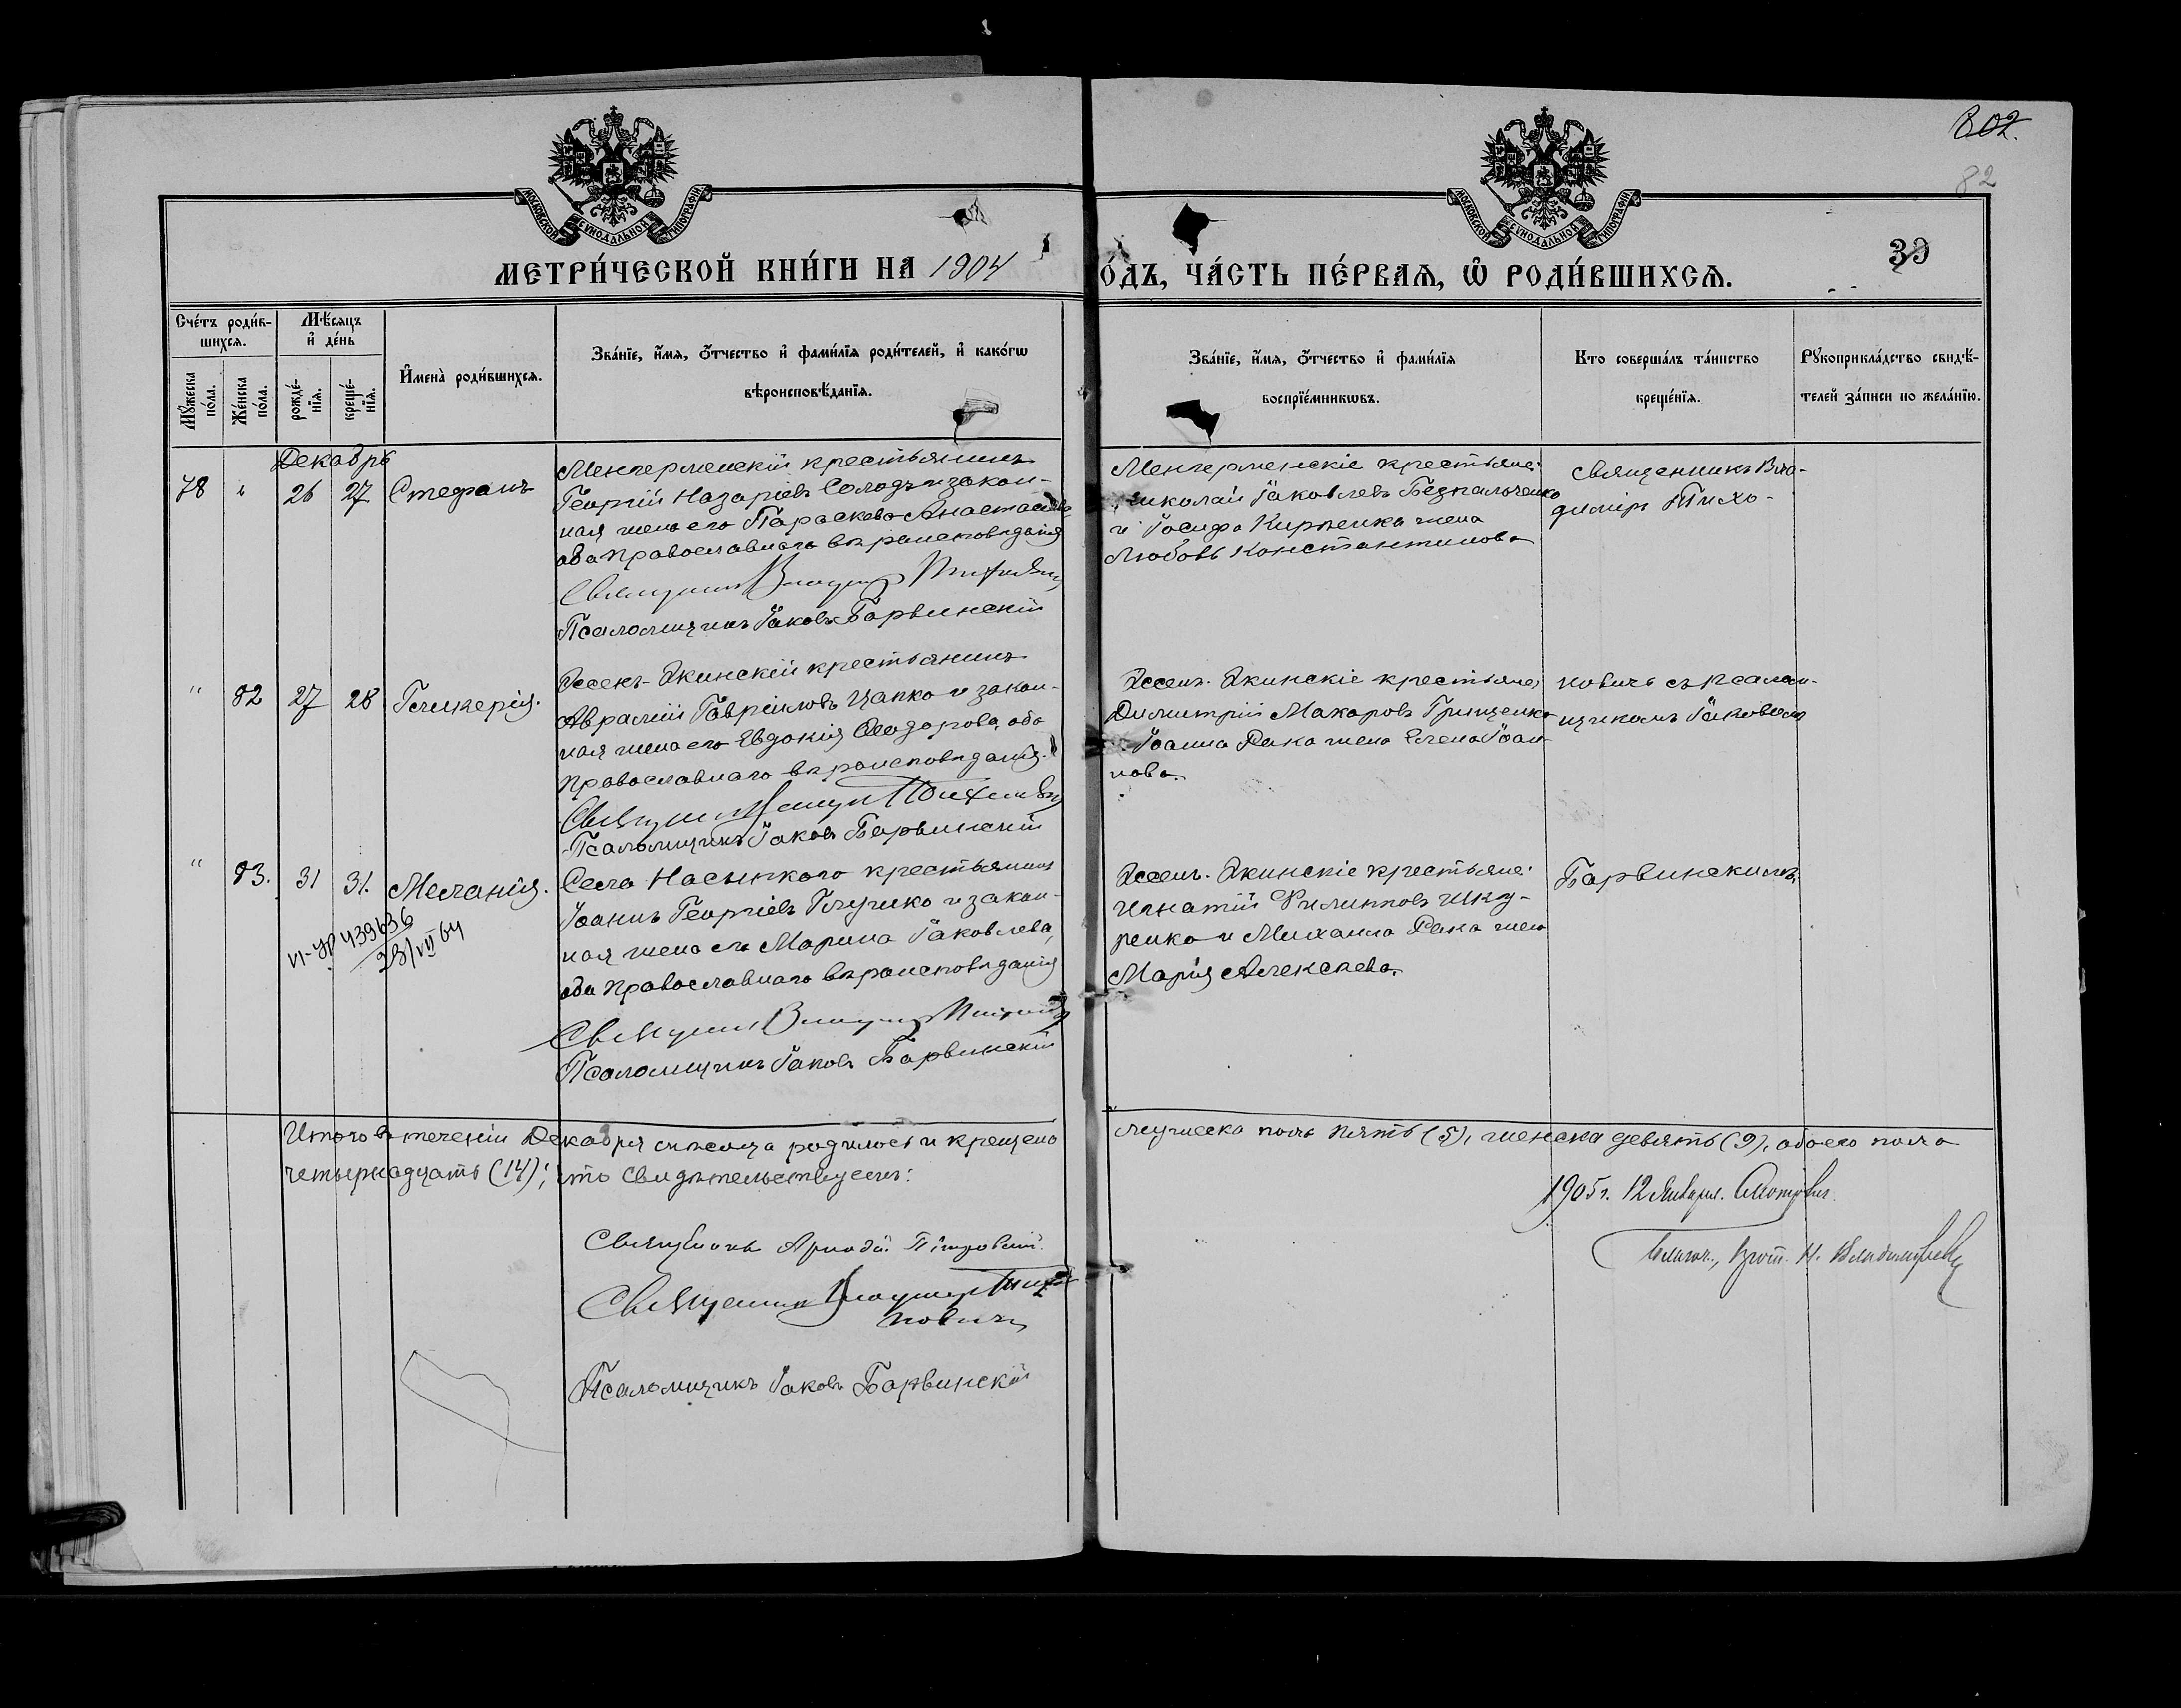 802.
82
39
МОСКОВСКОЙ СѴНОДАЛЬНОЙ ТИПОГРАФІИ
МОСКОВСКОЙ СѴНОДАЛЬНОЙ ТИПОГРАФІИ
МЕТРИ́ЧЕСКОЙ КНИ́ГИ НА 1904
О́ДЪ, ЧА́СТЬ ПЕ́РВАѦ, Ѡ РОДИ́ВШИХСѦ.
Сче́тъ роди́вшихсѧ.
Мꙋ́жеска по́ла.
Же́нска по́ла.
Мѣ́сѧцъ и де́нь
рожде́нїѧ.
креще́нїѧ.
Имена̀ роди́вшихсѧ.
Зва́нїе, и́мѧ, ѻ́тчество и фами́лїѧ роди́телей, и како́гѡ
вѣроисповѣ́данїѧ.
Зва́нїе, и́мѧ, ѻ́тчество и фами́лїѧ
воспрїе́мникѡвъ.
Кто соверша́лъ та́инство
креще́нїѧ.
Рꙋкоприкла́дство свидѣ́-
телей за́писи по жела́нїю.
Декабрь
78 " 26 27 Стефанъ
Менгерменскій крестьянинъ
Георгій Назаріевъ Солодъ и закон-
ная жена его Параскева
оба православнаго вѣроисповѣданія
Священникъ Владимір Тихнович
Псаломщикъ Іаковъ Барвинскій
Менгерменскіе крестьяне:
Николай Іаковлевъ Безпальченко
и Іосифа Кирпенка жена
Любовь Константинова
Священникъ Вла-
димір Тихо-
" 82 27 28 Гликерія.
Эссенъ-Экинскій крестьянинъ
Авраамій Гавріиловъ Цапко и закон-
ная жена его Евдокія Ѳеодорова, оба
православнаго вѣроисповѣданія.
Псаломщикъ Іаковъ Барвинскій
Эссенъ-Экинскіе крестьяне;
Димитрій Макаровъ Грищенко
Іоанна Рака жена Елена Іоан-
нова.
новичъ съ псалом-
щикомъ Іаковомъ
" 83. 31 31. Меланія.
VI-УР 439636
23/VII 64
Села Насыпкого крестьянинъ
Іоаннъ Георгіевъ Глушко и закон-
ная жена его Марина Іаковлева,
оба православнаго вѣроисповѣданія
Псаломщикъ Іаковъ Барвинскій
Эссенъ-Экинскіе крестьяне:
Игнатій Филипповъ Шку-
ренко и Михаила Рака жена
Марія Алексѣева.
Барвинскимъ.
Итого въ теченіи Декабря мѣсяца родилось и крещено
мужеска пола пять (5), женска девять (9), обоего пола
четырнадцать (14); что свидѣтельствуемъ:
1905 г. 12 Января.
Священникъ
Священникъ Владимир Тихновичъ
Псаломщикъ Іаковъ Барвинскій